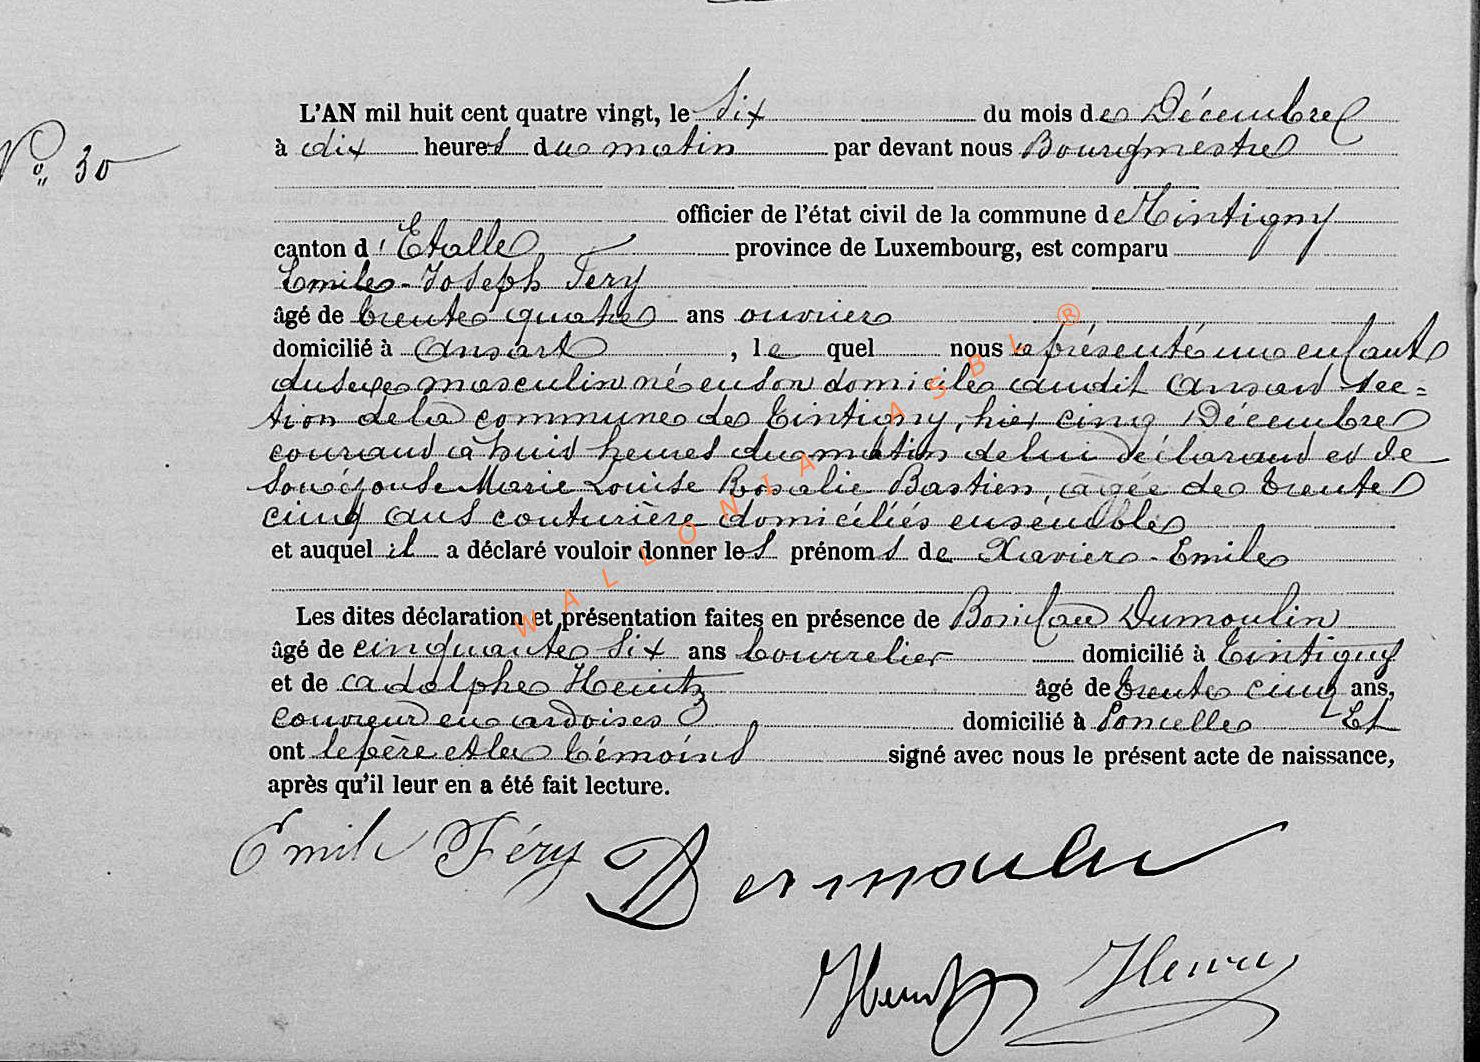 L'AN mil huit cent quatre vingt, le Six du mois de Décembre
N° 30
à dix heures du matin par devant nous Bourgmestre
officier de l'état civil de la commune de Tintigny
canton d'Etalle province de Luxembourg, est comparu
Emile-Joseph Fery
âgé de trente quatre ans ouvrier
domicilié à Ansart, le quel nous a présenté un enfant
du sexe masculin né en son domicile audit Ansart sec=
tion de la commune de Tintigny, hier cinq Décembre
courant à huit heures du matin de lui déclarant et de
Son épouse Marie Louise Rosalie Bastien, agée de trente
cinq ans couturière domiciliés ensemble
et auquel il a déclaré vouloir donner les prénoms de Xavier-Emile
Les dites déclaration et présentation faites en présence de Boniface Dumoulin
âgé de cinquante six ans bourrelier domicilié à Tintigny
et de adolphe Heintz âgé de trente cinq ans,
couvreur en ardoises domicilié à Poncelle Et
ont le père et les témoins signé avec nous le présent acte de naissance,
après qu'il leur en a été fait lecture.
Emile Féry Dumoulin
Heintz Henry
WALLONIA ASBL ®